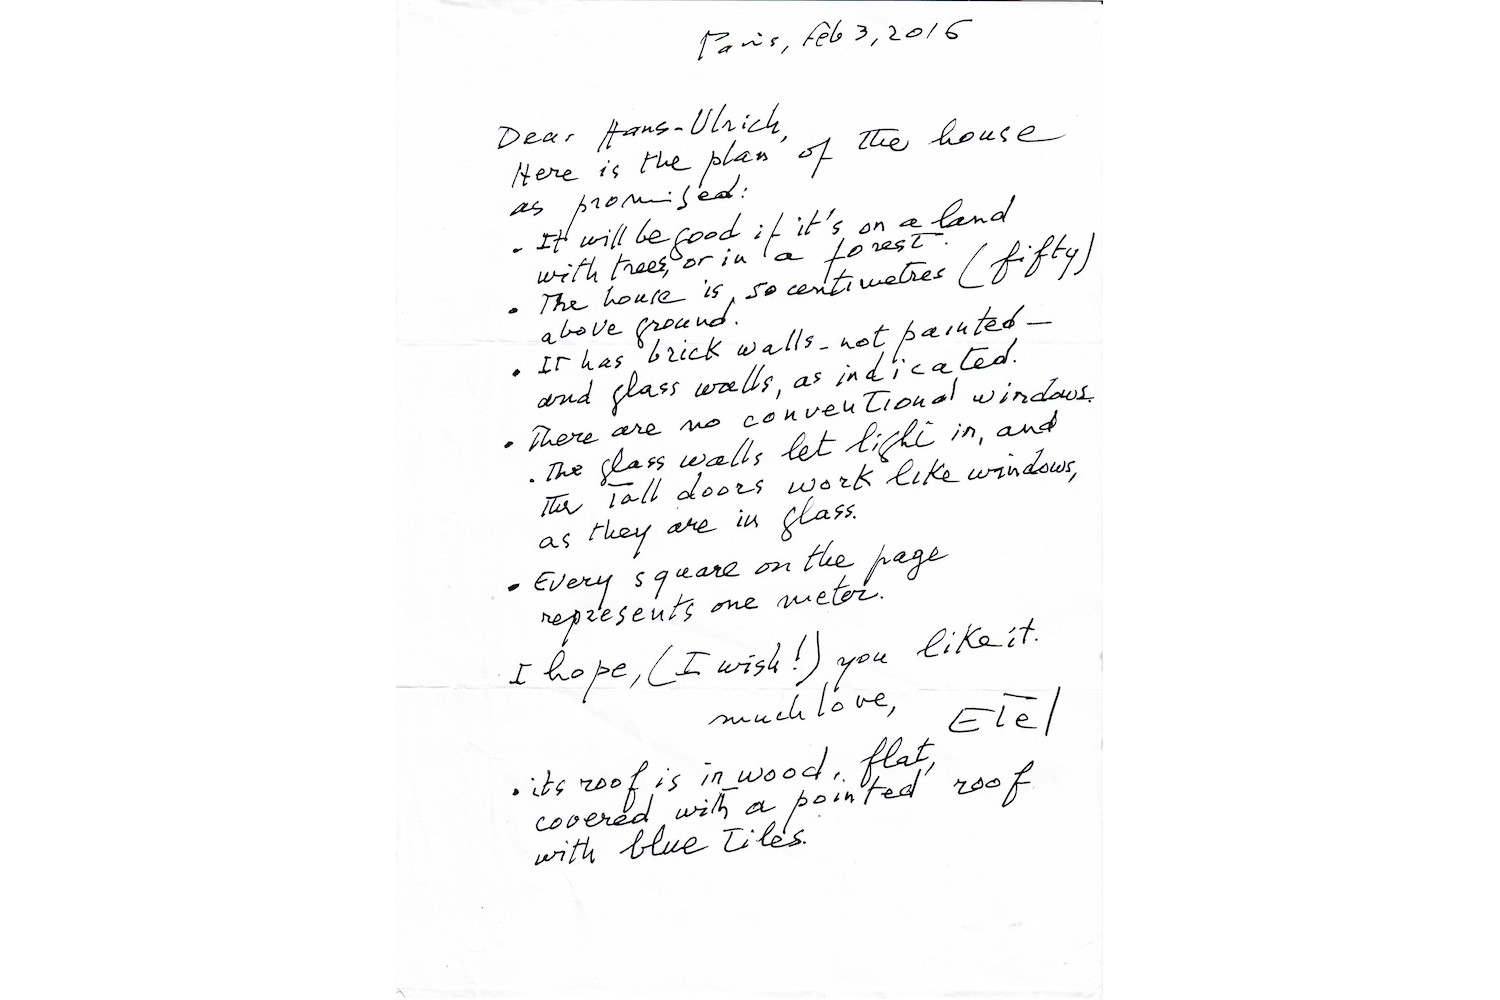 Paris, Feb 3, 2016
Dear Hans-Ulrich,
Here is the plan of the house
as promised:
• It will be good if it's on a land
with trees, or in a forest.
• The house is 50 centimetres (fifty)
above ground.
• It has brick walls - not painted -
and glass walls, as indicated.
• There are no conventional windows.
• The glass walls let light in, and
the tall doors work like windows,
as they are in glass.
• Every square on the page
represents one meter.
I hope, (I wish!) you like it.
much love,
Etel
• its roof is in wood, flat,
covered with a pointed roof
with blue tiles.